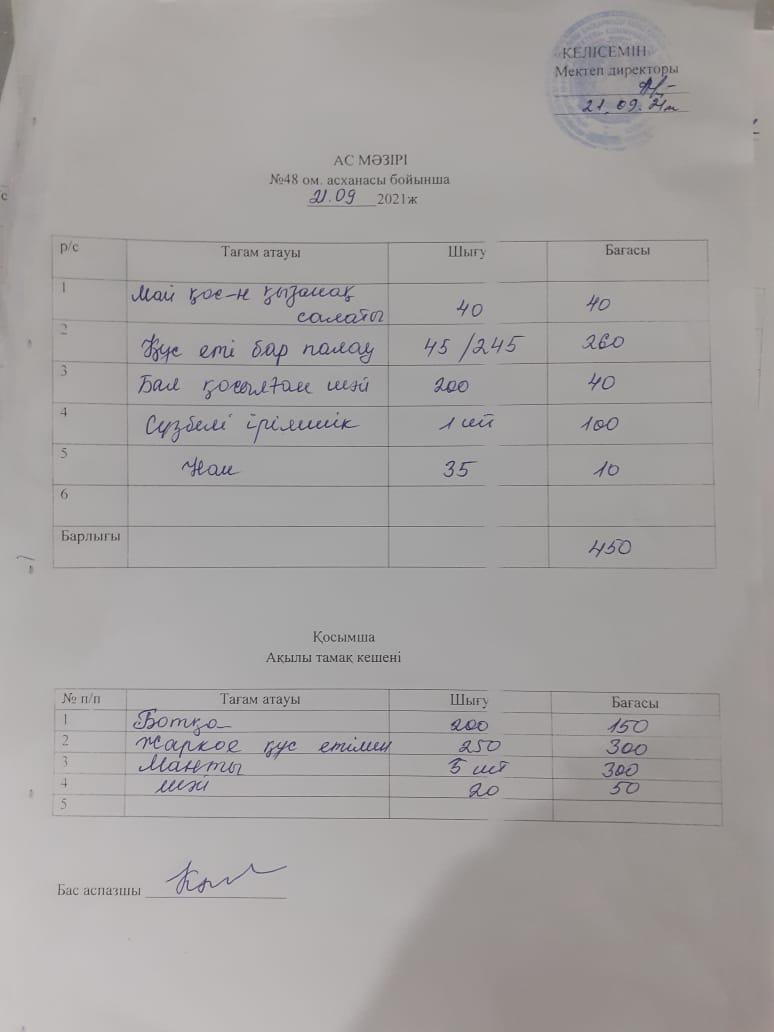 КЕЛІСЕМІН
Мектеп директоры
21.09.21ж
АС МӘЗІРІ
№48 ом. асханасы бойынша
21.09 2021ж
р/с Тағам атауы Шығу Бағасы
1 Май қос-н қызанақ
салаты 40 40
2 Құс еті бар палау 45/245 260
3 Бал қосылған шәй 200 40
4 Сүзбелі ірімшік 1 шт 100
5 Нан 35 10
6
Барлығы 450
Қосымша
Ақылы тамақ кешені
№ п/п Тағам атауы Шығу Бағасы
1 Ботқа 200 150
2 Жаркое құс етімен 250 300
3 Манты 5 шт 300
4 шәй 20 50
5
Бас аспазшы